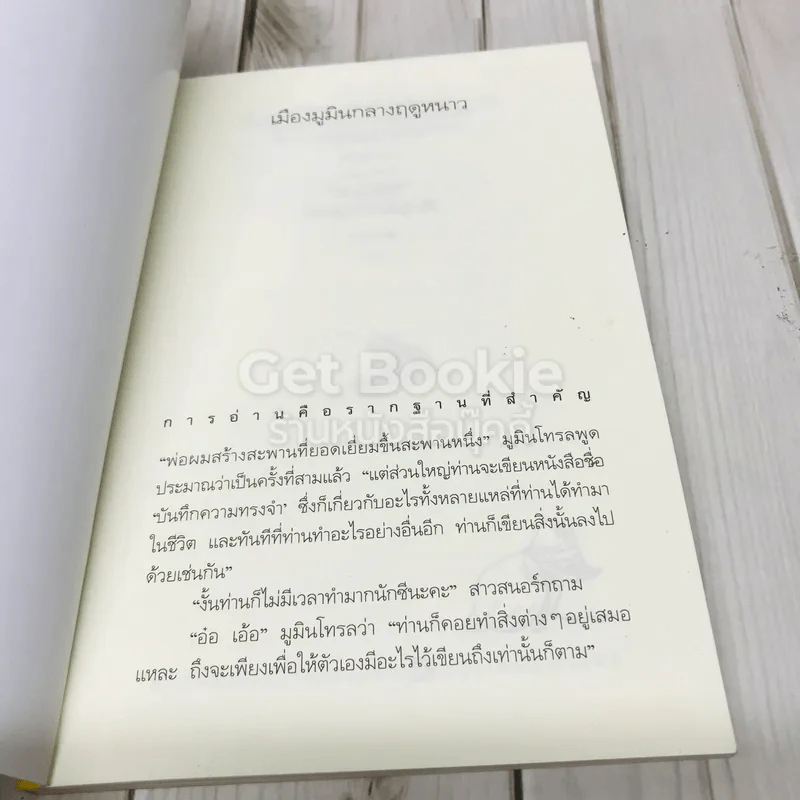 เมืองมูมินกลางฤดูหนาว
Get Bookie
การอ่านคือรากฐานที่สำคัญ
ร้านหนังสือบุ๊คกี้
“พ่อผมสร้างสะพานที่ยอดเยี่ยมขึ้นสะพานหนึ่ง” มูมินโทรลพูด
ประมาณว่าเป็นครั้งที่สามแล้ว “แต่ส่วนใหญ่ท่านจะเขียนหนังสือชื่อ
‘บันทึกความทรงจำ’ ซึ่งก็เกี่ยวกับอะไรทั้งหลายแหล่ที่ท่านได้ทำมา
ในชีวิต และทันทีที่ท่านทำอะไรอย่างอื่นอีก ท่านก็เขียนสิ่งนั้นลงไป
ด้วยเช่นกัน”
“งั้นท่านก็ไม่มีเวลาทำมากนักซีนะคะ” สาวสนอร์กถาม
“อ๋อ เอ้อ” มูมินโทรลว่า “ท่านก็คอยทำสิ่งต่างๆ อยู่เสมอ
แหละ ถึงจะเพียงเพื่อให้ตัวเองมีอะไรไว้เขียนถึงเท่านั้นก็ตาม”